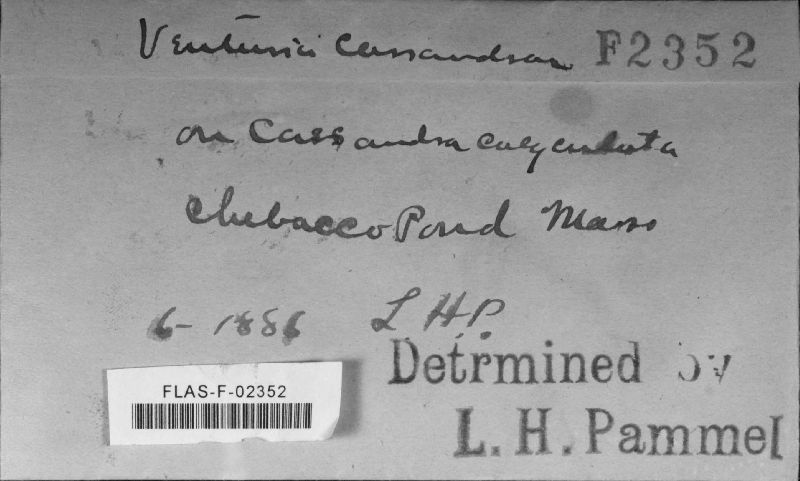 Venturia Cassandrae F2352
on Cassandra calyculata
Chebacco Pond Mass
6-1886 L H P.
Detrmined by
L. H. Pammel
FLAS-F-02352